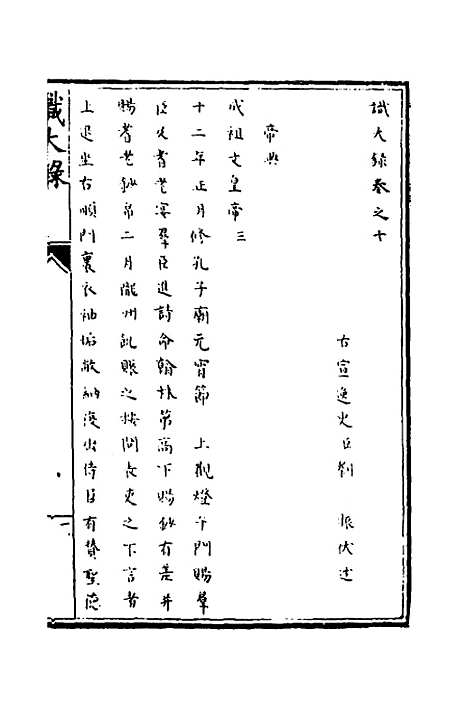 識大錄卷之十
古宣逸史臣劉 振伏述
帝典
成祖文皇帝三
十二年正月修孔子廟元宵節 上觀燈午門賜羣
臣及耆老宴羣臣進詩命翰林第高下賜鈔有差并
賜耆老鈔帛二月隴州飢賑之按問長吏之不言者
上退坐右順門裏衣袖垢敝納復出侍臣有贊聖德
識大錄